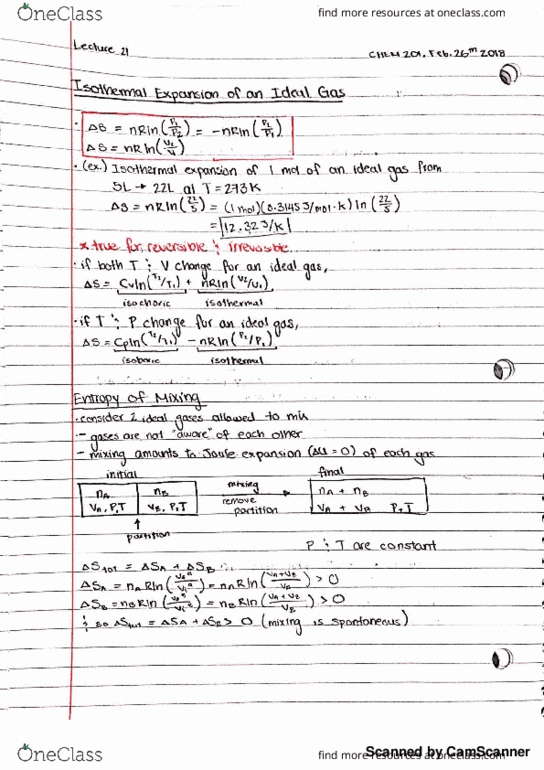 OneClass find more resources at oneclass.com
Lecture 21
CHEM 201, Feb. 26th 2018
Isothermal Expansion of an Ideal Gas
· ΔS = nRln(P₁/P₂) = -nRln(P₂/P₁)
ΔS = nRln(V₂/V₁)
· (ex.) Isothermal expansion of 1 mol of an ideal gas from
5L → 22L at T = 273K
ΔS = nRln(22/5) = (1 mol)(8.3145 J/mol·K) ln(22/5)
= 12.32 J/K
* true for reversible & irreversible
· if both T & V change for an ideal gas,
ΔS = Cvln(T₂/T₁) + nRln(V₂/V₁)
isochoric isothermal
· if T & P change for an ideal gas,
ΔS = Cpln(T₂/T₁) - nRln(P₂/P₁)
isobaric isothermal
Entropy of Mixing
· consider 2 ideal gases allowed to mix
- gases are not "aware" of each other
- mixing amounts to Joule expansion (ΔU = 0) of each gas
initial final
nA nB mixing nA + nB
VA, P,T VB, P,T remove partition VA + VB P,T
partition
P & T are constant
ΔStot = ΔSA + ΔSB
ΔSA = nARln(V₂ᴬ/V₁ᴬ) = nARln(VA + VB/VA) > 0
ΔSB = nBRln(V₂ᴮ/V₁ᴮ) = nBRln(VA + VB/VB) > 0
& so ΔStot = ΔSA + ΔSB > 0 (mixing is spontaneous)
OneClass find more resources at oneclass.com
Scanned by CamScanner